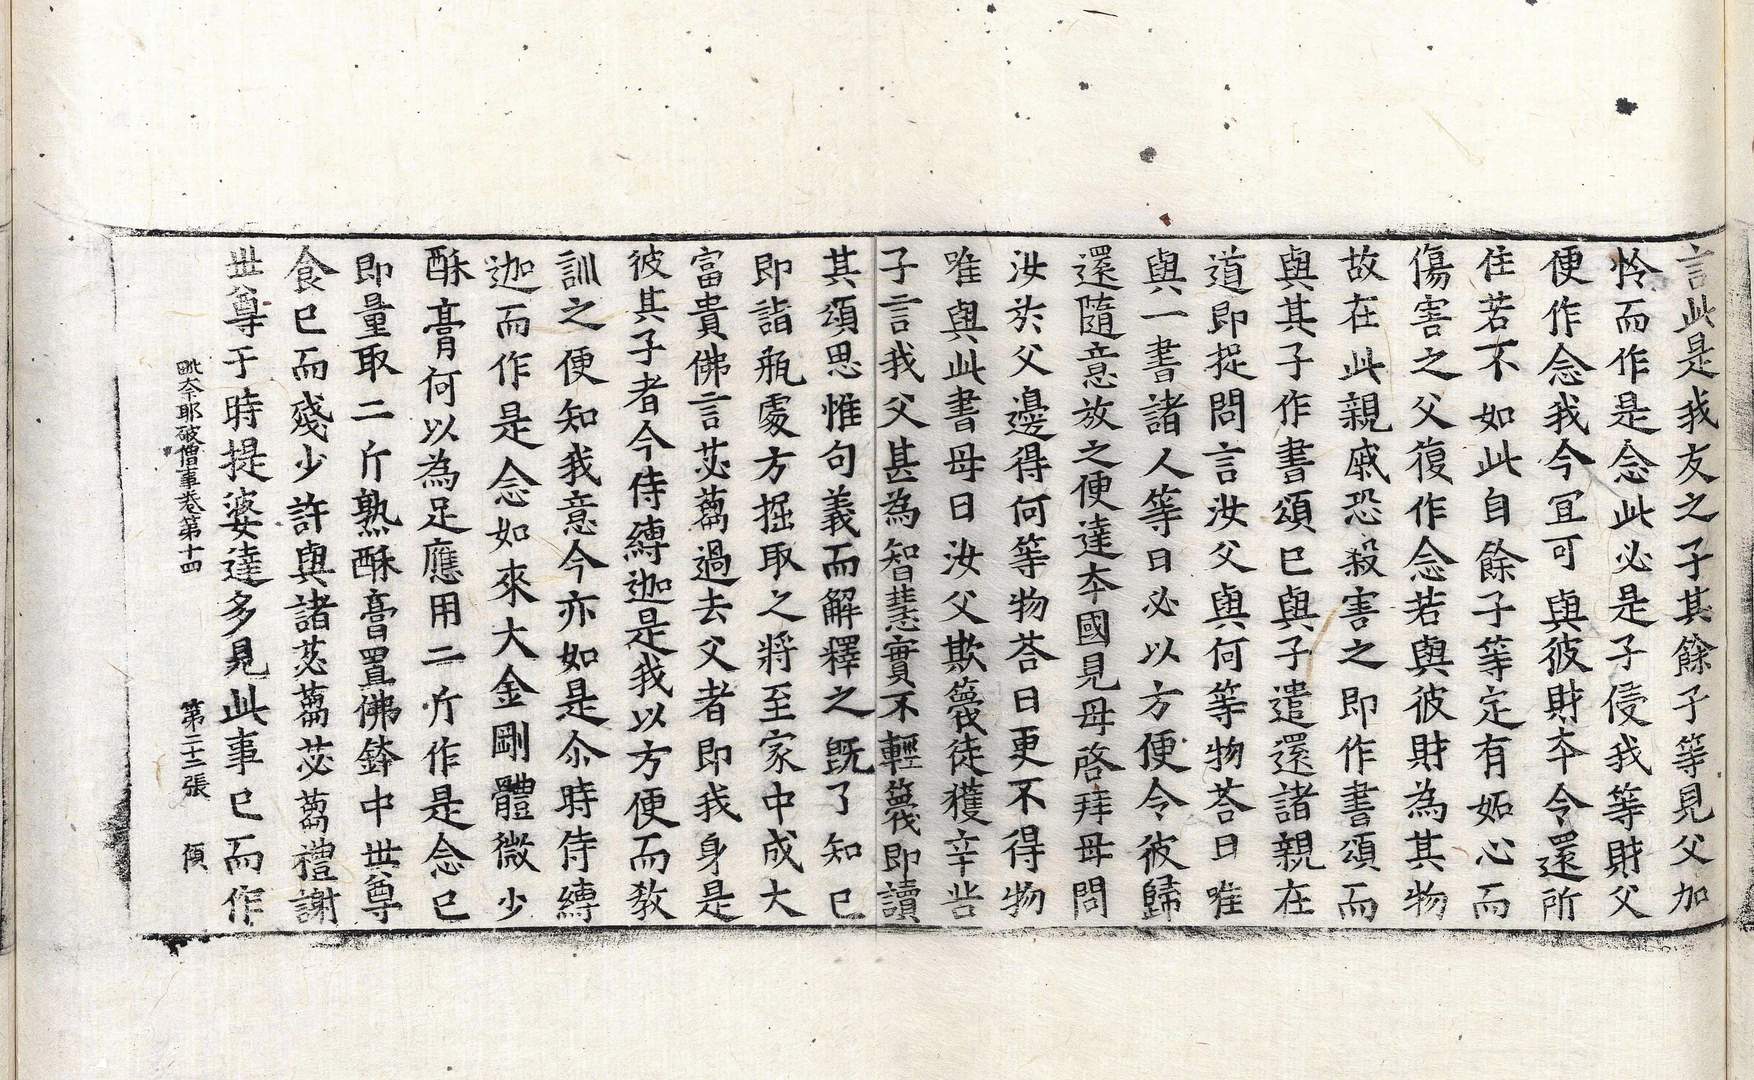 言此是我友之子其餘子等見父加
怜而作是念此必是子侵我等財父
便作念我今冝可與彼財夲令還所
住若不如此自餘子等定有妬心而
傷害之父復作念若與彼財為其物
故在此親戚恐殺害之即作書頌而
與其子作書頌已與子遣還諸親在
道即捉問言汝父與何等物荅曰唯
與一書諸人等曰必以方便令彼歸
還隨意放之便達夲國見母啓拜母問
汝於父邊得何等物荅曰更不得物
唯與此書母曰汝父欺篾徒獲辛苦
子言我父甚為智慧實不輕篾即讀
其頌思惟句義而解釋之既了知已
即詣瓶處方掘取之將至家中成大
富貴佛言苾蒭過去父者即我身是
彼其子者今侍縛迦是我以方便而教
訓之便知我意今亦如是尒時侍縛
迦而作是念如來大金剛體微少
酥膏何以為足應用二斤作是念已
即量取二斤熟酥膏置佛鉢中世尊
食已而殘少許與諸苾蒭苾蒭禮謝
世尊于時提婆達多見此事已而作
毗奈耶破僧事卷第十四 第二十二張 傾